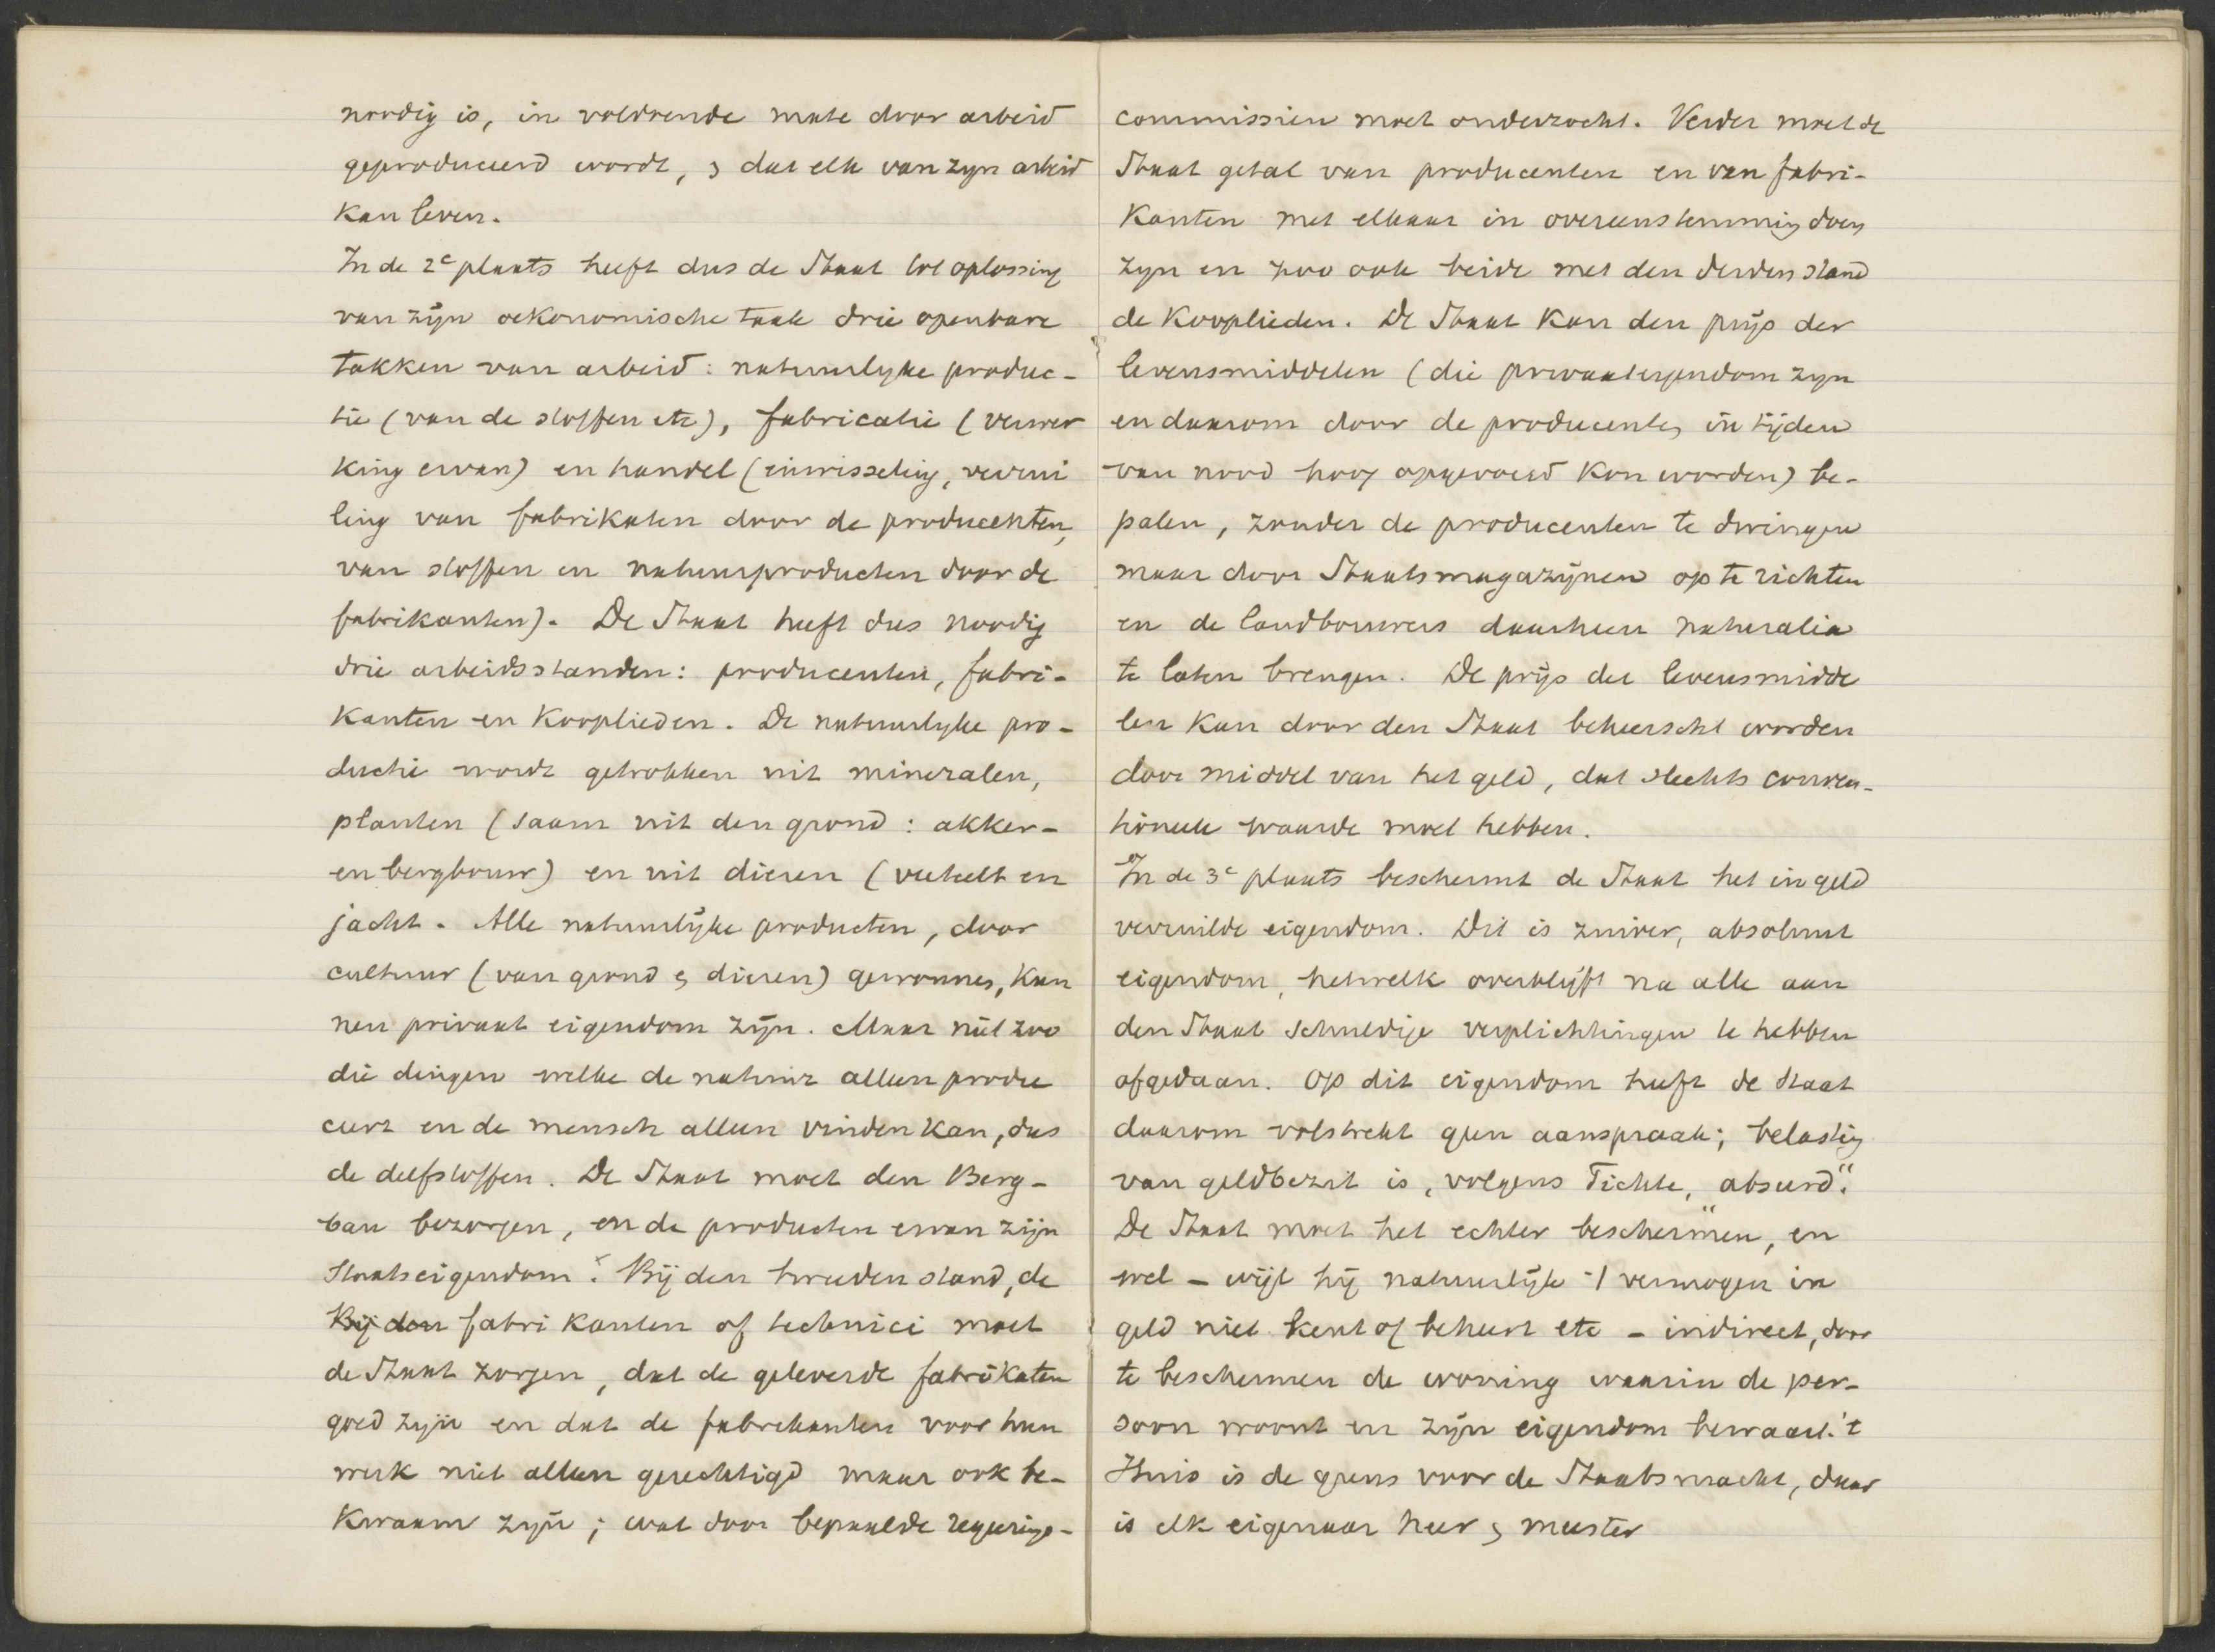 noodig is, in voldoende mate door arbeid
geproduceerd wordt, & dat elk van zyn arbeid
kan leven.
In de 2e plaats heeft dus de Staat tot oplossing
van zijn oekonomische taak drie openbare
takken van arbeid: natuurlyke produc-
tie (van de stoffen etc), fabricatie (verwer
king ervan) en handel (inwisseling, verrui
ling van fabrikaten door de producenten,
van stoffen en natuurproducten door de
fabrikanten). De Staat heeft dus noodig
drie arbeidsstanden: producenten, fabri-
kanten en kooplieden. De natuurlyke pro-
ductie wordt getrokken uit mineralen,
planten (saam uit den grond: akker-
en bergbouw) en uit dieren (veeteelt en
jacht. Alle natuurlijke producten, door
cultuur (van grond & dieren) gewonnen, kun
nen privaat eigendom zijn. Maar niet zoo
die dingen welke de natuur alleen produ
ceert en de mensch alleen vinden kan, dus
de delfstoffen. De Staat moet den Berg-
bau bezorgen, en de producten ervan zijn
Staatseigendom. Bij den tweeden stand, de
Bij den fabrikanten of technici moet
de Staat zorgen, dat de geleverde fabrikaten
goed zijn en dat de fabrikanten voor hun
werk niet alleen gerechtigd maar ook be-
kwaam zijn; wat door bepaalde regeerings-
commissien moet onderzocht. Verder moet de
Staat getal van producenten en van fabri-
kanten met elkaar in overeenstemming doen
zyn en zoo ook beide met den derden stand
de kooplieden. De Staat kan den prijs der
levensmiddelen (die privaateigendom zyn
en daarom door de producenten in tijden
van nood hoog opgevoerd kon worden) be-
palen, zonder de producenten te dwingen
maar door Staatsmagazijnen op te richten
en de landbouwers daarheen naturalia
te laten brengen. De prijs der levensmidde
len kan door den Staat beheerscht worden
door middel van het geld, dat slechts conven-
tioneele waarde moet hebben.
In de 3e plaats beschermt de Staat het in geld
verruilde eigendom. Dit is zuiver, absoluut
eigendom, hetwelk overblijft na alle aan
den Staat schuldige verplichtingen te hebben
afgedaan. Op dit eigendom heeft de Staat
daarom volstrekt geen aanspraak; belasting
van geldbezit is, volgens Fichte, „absurd“.
De Staat moet het echter beschermen, en
wel – wijl hij natuurlijk 't vermogen in
geld niet kent of beheert etc – indirect, door
te beschermen de woning waarin de per-
soon woont en zijn eigendom bewaart. 't
Huis is de grens voor de Staatsmacht, daar
is elk eigenaar heer & meester